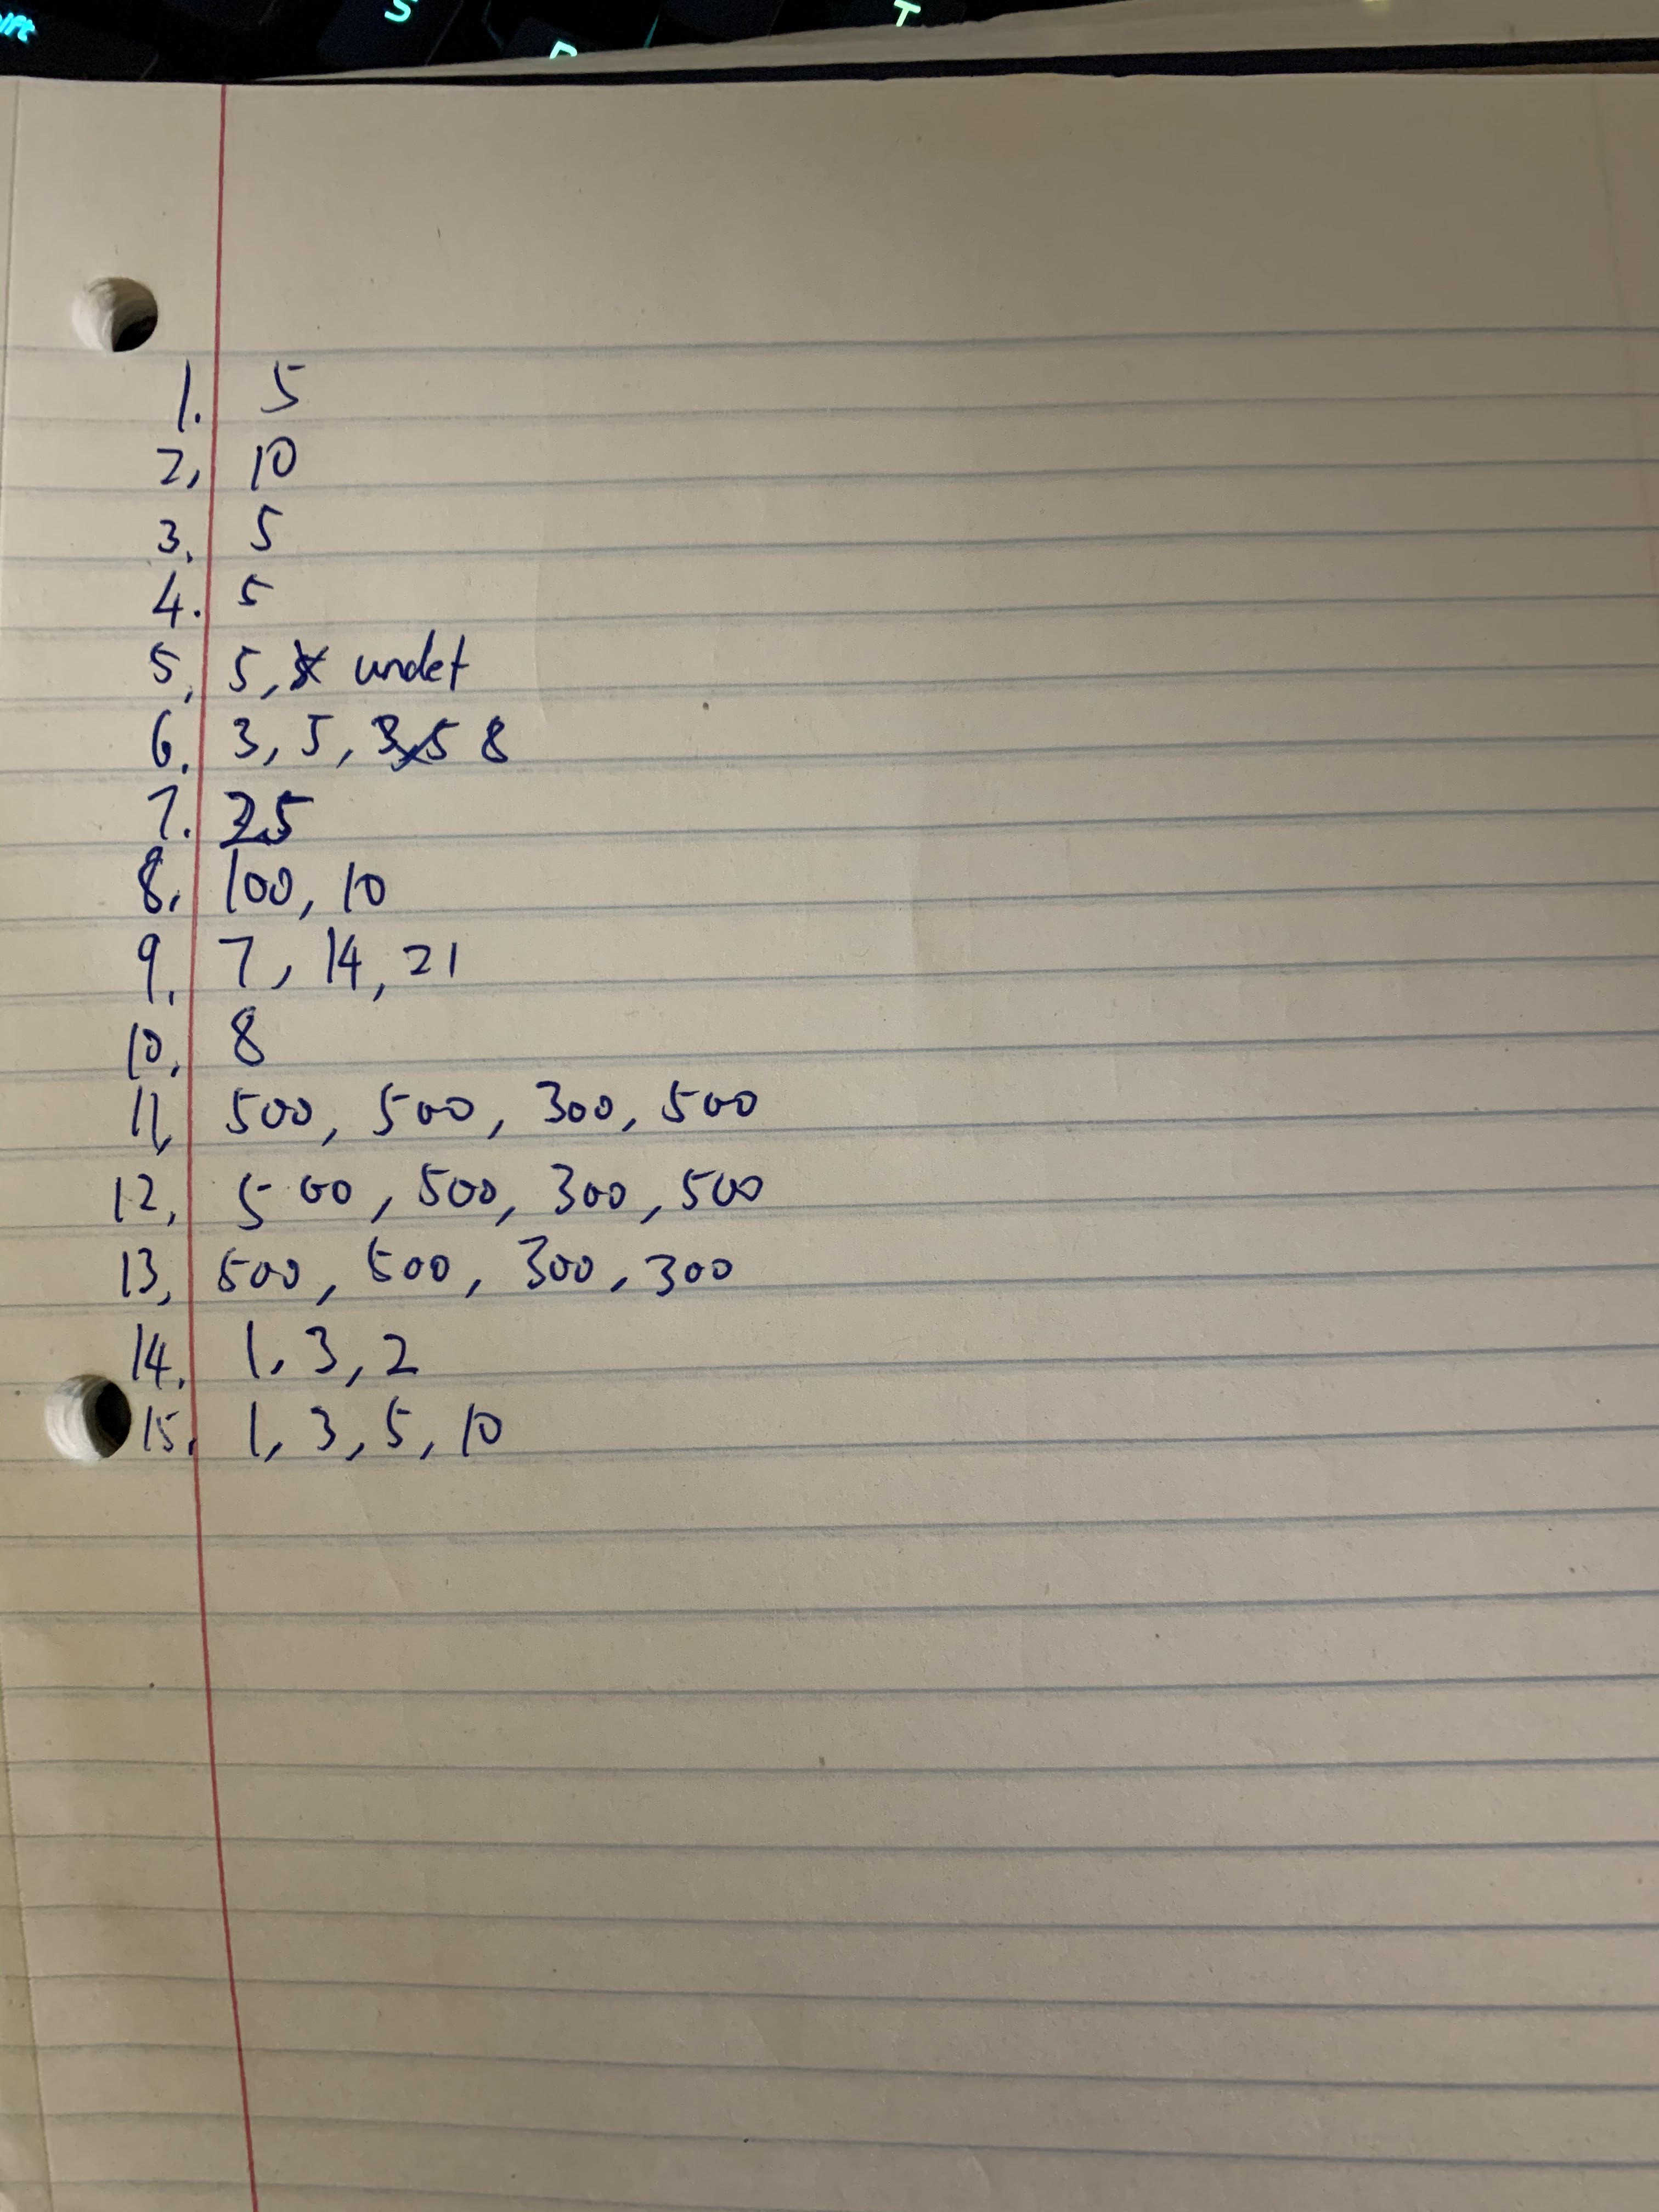 ift S T
1. 5
2, 10
3. 5
4. 5
5, 5, undef
6. 3, 5, 8
7. 25
8, 100, 10
9, 7, 14, 21
10, 8
11, 500, 500, 300, 500
12, 500, 500, 300, 500
13, 500, 500, 300, 300
14. 1, 3, 2
15. 1, 3, 5, 10